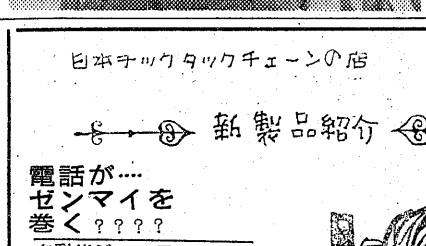 日本チックタックチェーンの店
新製品紹介
電話が‥‥
ゼンマイを
巻く????